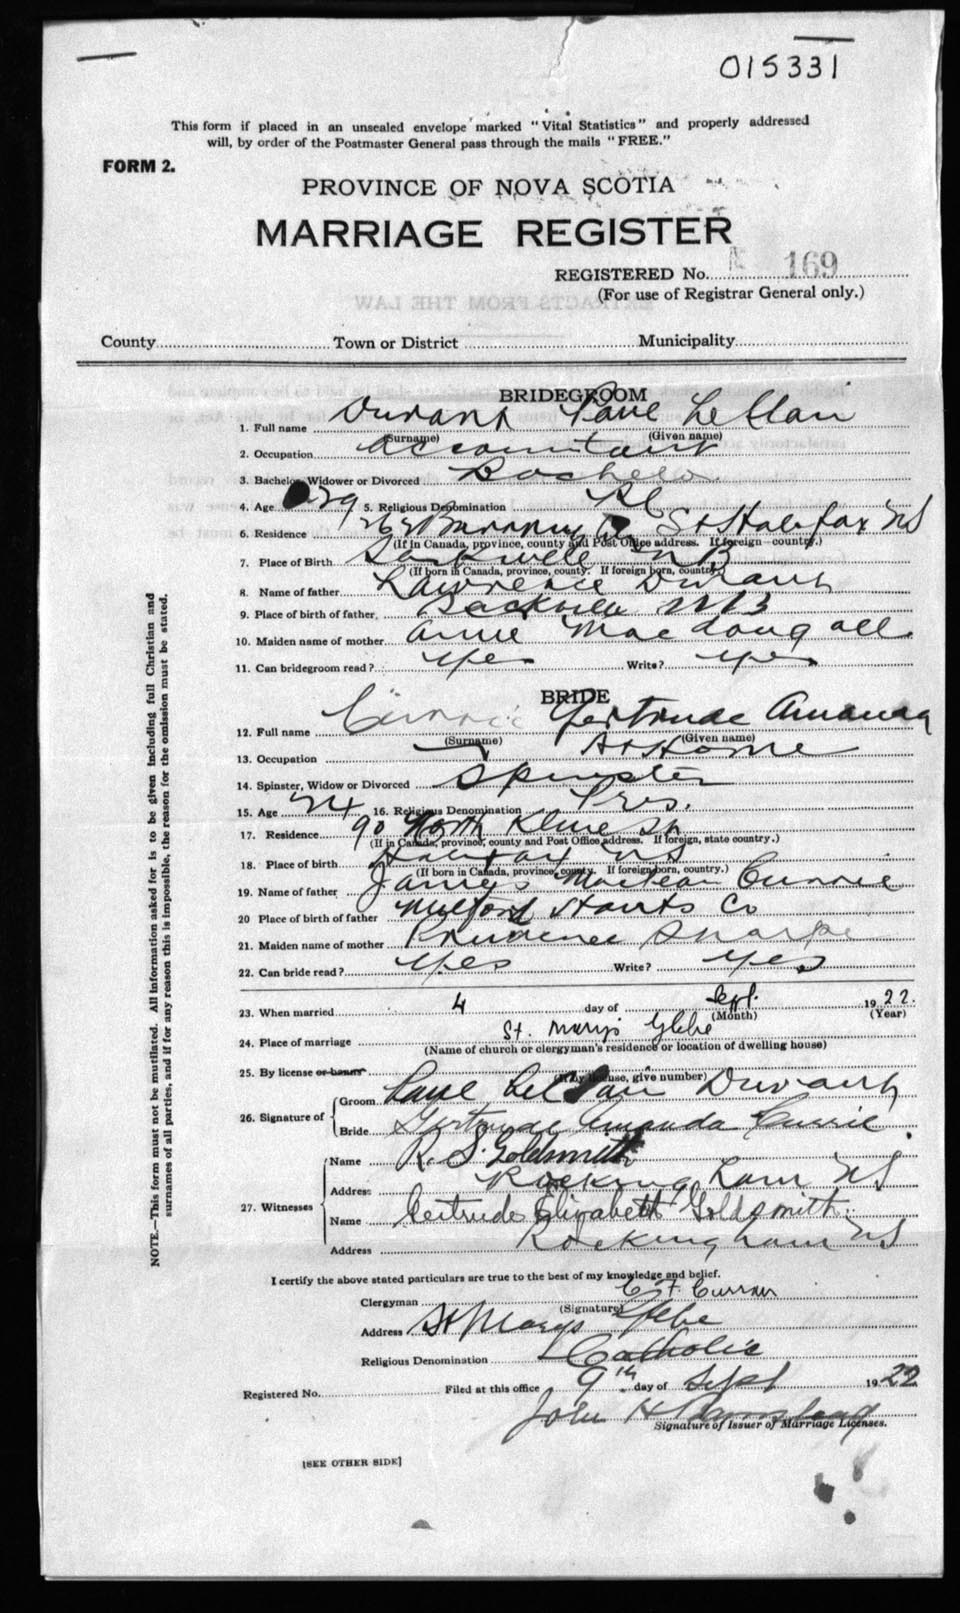 015331
This form if placed in an unsealed envelope marked "Vital Statistics" and properly addressed
will, by order of the Postmaster General pass through the mails "FREE."
FORM 2.
PROVINCE OF NOVA SCOTIA
MARRIAGE REGISTER
REGISTERED No. 169
(For use of Registrar General only.)
EXTRACTS FROM THE LAW
County Town or District Municipality
BRIDEGROOM
1. Full name Durant Paul LeBlanc
(Surname) (Given name)
2. Occupation accountant
3. Bachelor, Widower or Divorced Bachelor
4. Age 29 5. Religious Denomination RC
6. Residence St Halifax NS
(If in Canada, province, county and Post Office address. If foreign country.)
7. Place of Birth Sackville NB
(If born in Canada, province, county. If foreign born, country)
8. Name of father Lawrence Durant
9. Place of birth of father, Sackville NB
10. Maiden name of mother Annie MacDougall
11. Can bridegroom read? yes Write? yes
BRIDE
12. Full name Currie Gertrude Amanda
(Surname) (Given name)
13. Occupation At Home
14. Spinster, Widow or Divorced Spinster
15. Age 24 16. Religious Denomination Pres.
17. Residence 90 North Kline St
(If in Canada, province, county and Post Office address. If foreign, state country.)
18. Place of birth Halifax NS
(If born in Canada, province, county. If foreign born, country.)
19. Name of father James MacLean Currie
20 Place of birth of father Milford Hants Co
21. Maiden name of mother Prudence Sharpe
22. Can bride read? yes Write? yes
23. When married 4 day of Sept. 1922.
(Month) (Year)
24. Place of marriage St. Mary's Glebe
(Name of church or clergyman's residence or location of dwelling house)
25. By license or banns (If by license, give number)
26. Signature of Groom Durant
Bride Gertrude Amanda Currie.
27. Witnesses Name R. S. Goldsmith
Address Rockingham NS
Name Gertrude Elizabeth Goldsmith.
Address Rockingham NS
I certify the above stated particulars are true to the best of my knowledge and belief.
Clergyman C F Curran
(Signature)
Address St Marys Glebe
Religious Denomination Catholic
Registered No. Filed at this office 9th day of Sept 1922
John H
Signature of Issuer of Marriage Licenses.
[SEE OTHER SIDE]
NOTE.—This form must not be mutilated. All information asked for is to be given including full Christian and
surnames of all parties, and if for any reason this is impossible, the reason for the omission must be stated.